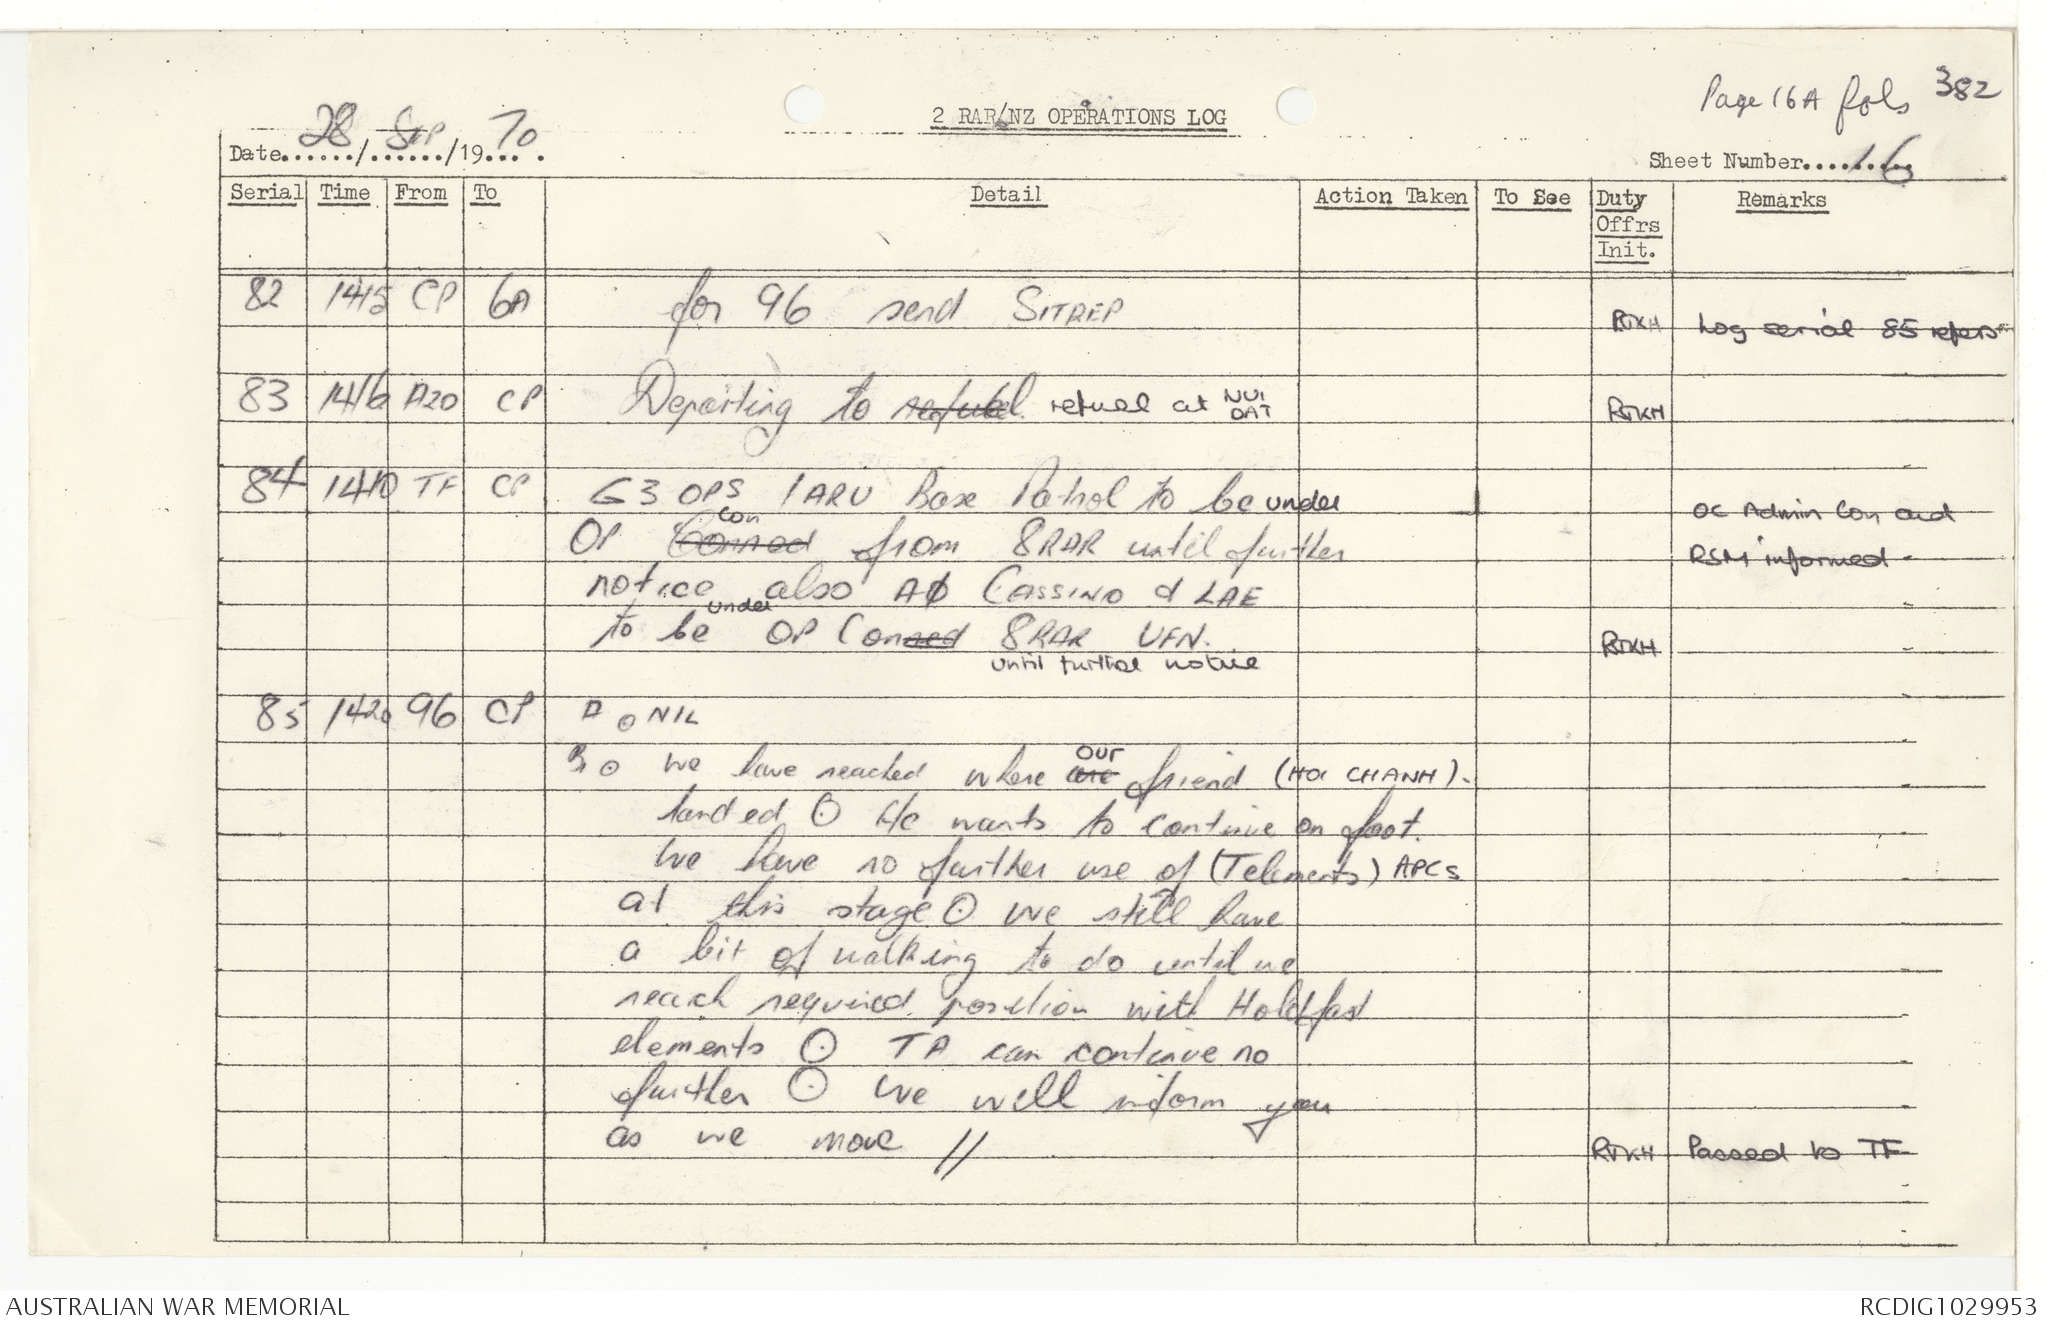 Page 16A fols 382
2 RAR/NZ OPERATIONS LOG
Date 28/Sep/1970.
Sheet Number 16
Serial Time From To Detail Action Taken To See Duty Offrs Init. Remarks
82 1415 CP 6A for 96 send SITREP RTKH Log serial 85 refers
83 1416 A20 CP Departing to refuel refuel at NUI DAT RTKH
84 1410 TF CP G3 OPS 1ARU Base Patrol to be under OC Admin Coy and
OP Conned con from 8RAR until further RSM informed
notice also AØ CASSINO & LAE
to be under OP Conned 8RAR UFN. RTKH
until further notice
85 1420 96 CP A ⊙ NIL
B ⊙ We have reached where are OUR friend (HOI CHANH).
landed ⊙ He wants to continue on foot.
We have no further use of (T elements) APCs
at this stage ⊙ We still have
a bit of walking to do until we
reach required position with Holdfast
elements ⊙ TA can continue no
further ⊙ We will inform you
as we move // RTKH Passed to TF
AUSTRALIAN WAR MEMORIAL RCDIG1029953